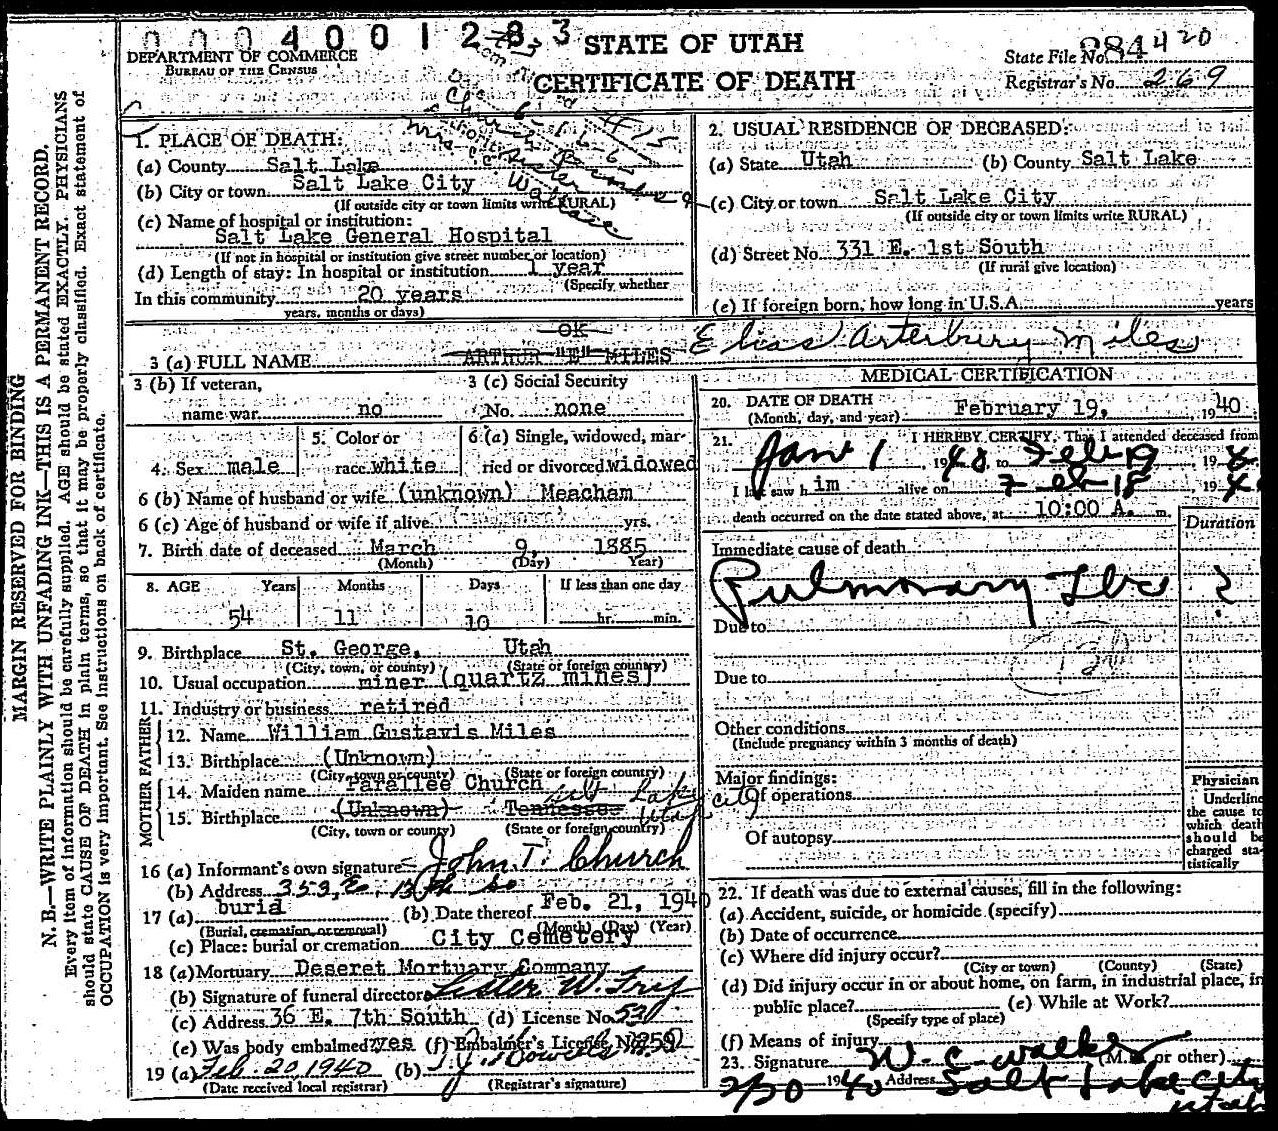 000400128 3
STATE OF UTAH
CERTIFICATE OF DEATH
DEPARTMENT OF COMMERCE
BUREAU OF THE CENSUS
State File No. 284 420
Registrar's No. 269
MARGIN RESERVED FOR BINDING
N. B.—WRITE PLAINLY WITH UNFADING INK—THIS IS A PERMANENT RECORD.
Every item of information should be carefully supplied. AGE should be stated EXACTLY. PHYSICIANS
should state CAUSE OF DEATH in plain terms, so that it may be properly classified. Exact statement of
OCCUPATION is very important. See instructions on back of certificate.
1. PLACE OF DEATH:
(a) County Salt Lake
(b) City or town Salt Lake City
(If outside city or town limits write RURAL)
(c) Name of hospital or institution:
Salt Lake General Hospital
(If not in hospital or institution give street number or location)
(d) Length of stay: In hospital or institution 1 year
(Specify whether
In this community 20 years
years, months or days)
2. USUAL RESIDENCE OF DECEASED:
(a) State Utah (b) County Salt Lake
(c) City or town Salt Lake City
(If outside city or town limits write RURAL)
(d) Street No. 331 E. 1st South
(If rural give location)
(e) If foreign born, how long in U.S.A. years
OK
3 (a) FULL NAME ARTHUR "E" MILES Elias Arterbury Miles
3 (b) If veteran, name war no
3 (c) Social Security No. none
4. Sex male
5. Color or race white
6 (a) Single, widowed, married or divorced widowed
6 (b) Name of husband or wife (unknown) Meacham
6 (c) Age of husband or wife if alive yrs.
7. Birth date of deceased March 9, 1885
(Month) (Day) Year)
8. AGE Years Months Days If less than one day
54 11 10 hr. min.
9. Birthplace St. George, Utah
(City, town, or county) (State or foreign country)
10. Usual occupation miner (quartz mines)
11. Industry or business retired
FATHER
12. Name William Gustavis Miles
13. Birthplace (Unknown)
(City, town or county) (State or foreign country)
MOTHER
14. Maiden name Farallee Church
15. Birthplace (Unknown) Tennessee Salt Lake City Utah
(City, town or county) (State or foreign country)
16 (a) Informant's own signature John T. Church
(b) Address 353 E. 13th So
17 (a) burial (b) Date thereof Feb. 21, 1940
(Burial, cremation, or removal) (Month) (Day) (Year)
(c) Place: burial or cremation City Cemetery
18 (a) Mortuary Deseret Mortuary Company
(b) Signature of funeral director Lester W. Fry
(c) Address 36 E. 7th South (d) License No. 530
(e) Was body embalmed? yes (f) Embalmer's License No. 259
19 (a) Feb. 20, 1940 (b)
(Date received local registrar) (Registrar's signature)
MEDICAL CERTIFICATION
20. DATE OF DEATH
(Month, day, and year) February 19, 1940.
21. I HEREBY CERTIFY, That I attended deceased from
Jan 1, 19 40, to Feb 19 19 4
I last saw him alive on Feb 18, 19 4
death occurred on the date stated above, at 10:00 A. m.
Duration
Immediate cause of death
Pulmonary Tbc ?
Due to
Due to
Other conditions
(Include pregnancy within 3 months of death)
Major findings:
Of operations
Of autopsy
Physician
Underline
the cause to
which death
should be
charged sta-
tistically
22. If death was due to external causes, fill in the following:
(a) Accident, suicide, or homicide (specify)
(b) Date of occurrence
(c) Where did injury occur?
(City or town) (County) (State)
(d) Did injury occur in or about home, on farm, in industrial place, in
public place? (e) While at Work?
(Specify type of place)
(f) Means of injury
23. Signature W. C. Walker (M.D. or other)
2/20 1940 Address Salt Lake City
Utah